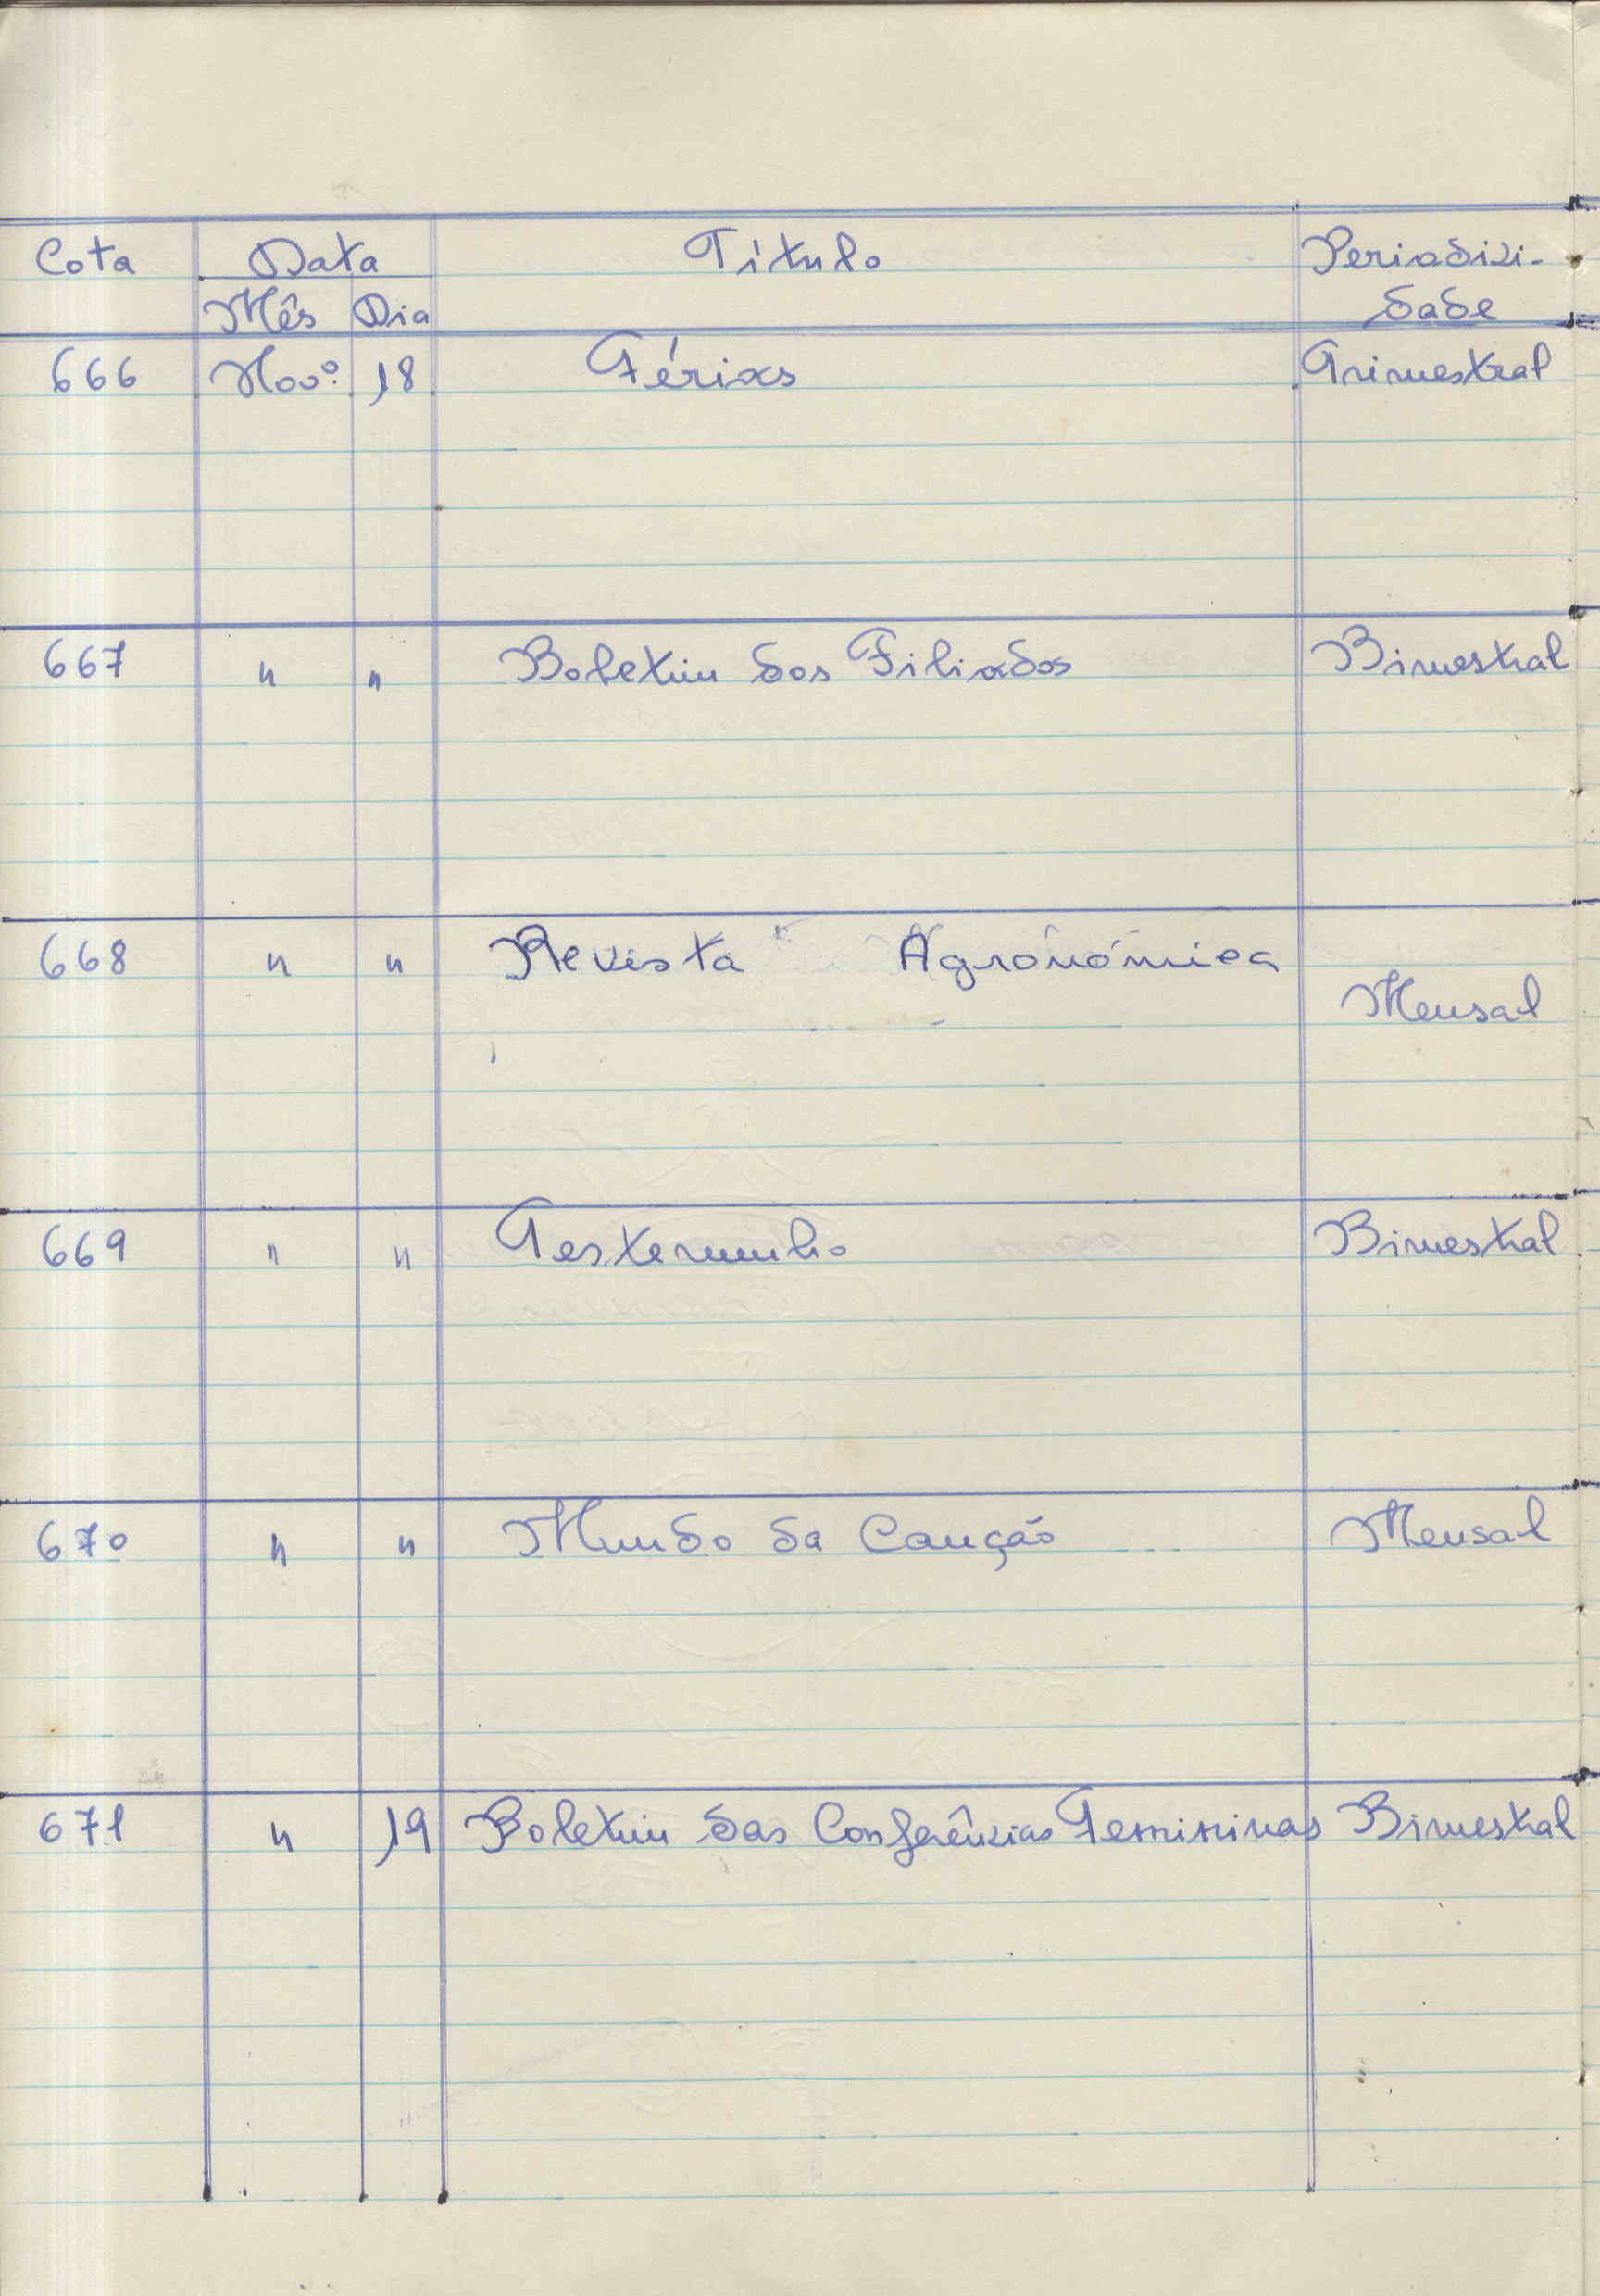 Cota Data Título Periodici-
Mês Dia dade
666 Novº. 18 Férias Trimestral
667 " " Boletim dos Filiados Bimestral
668 " " Revista Agronómica
Mensal
669 " " Testemunho Bimestral
670 " " Mundo da Canção Mensal
671 " 19 Boletim das Conferências Femininas Bimestral